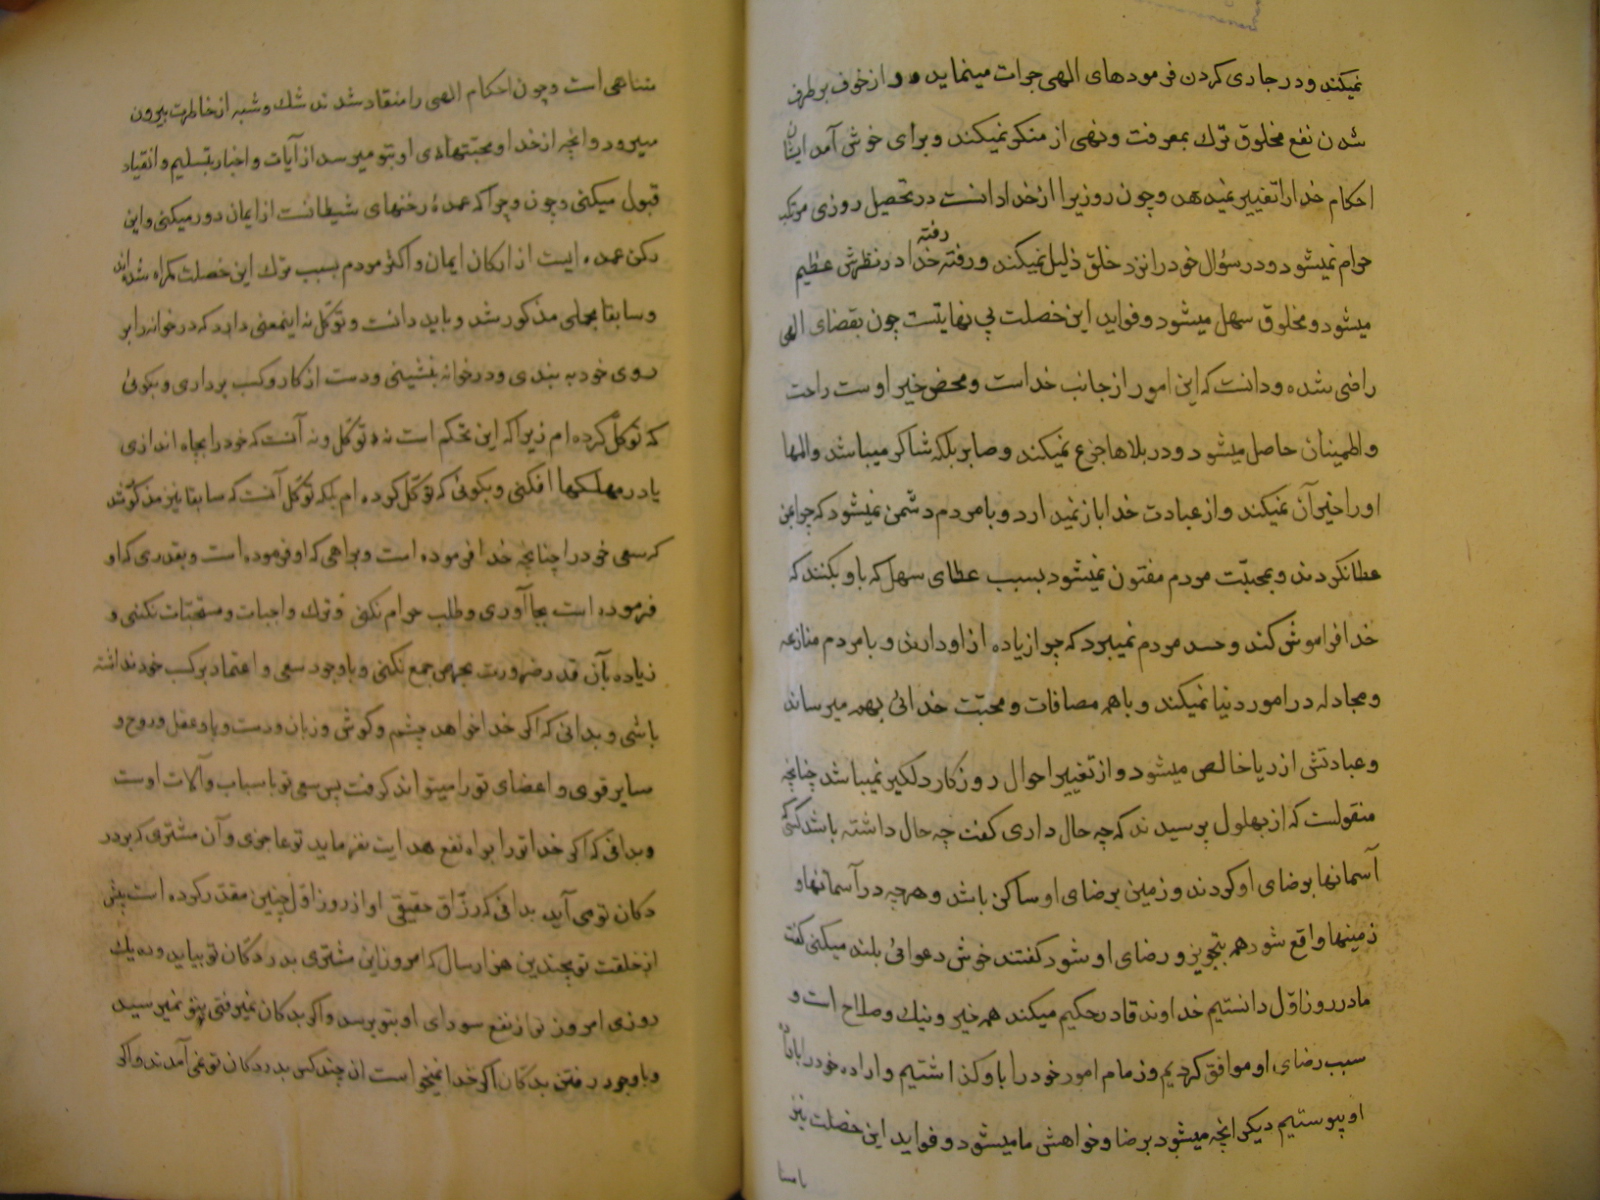 نمیکند و در جاری کردن فرمودهای الهی جرات مینماید و از خوف بر طرف
شدن نفع مخلوق ترک بمعرفت و نهی از منکر نمیکند و برای خوش آمد ایشان
احکام خدا را تغییر نمیدهد و چون روزیرا از خدا دانست در تحصیل روزی مرتکب
حرام نمیشود و در سؤال خود را نزد خلق ذلیل نمیکند و رفته رفته خدا در نظرش عظیم
میشود و مخلوق سهل میشود و فواید این خصلت بی نهایتست چون بقضای الهی
راضی شده و دانست که این امور از جانب خداست و محض خیر اوست راحت
و اطمینان حاصل میشود و در بلاها جزع نمیکند و صابر بلکه شاکر میباشد و المها
او را حیران نمیکند و از عبادت خدا باز نمیدارد و با مردم دشمن نمیشود که چرا بمن
عطا نکردند و بمحبّت مردم مفتون نمیشود بسبب عطای سهل که باو بکنند که
خدا فراموش کند و حسد مردم نمیبرد که چرا زیاده از او دارند و با مردم منازعه
و مجادله در امور دنیا نمیکند و با همه مصافات و محبّت خدائی بهم میرساند
و عبادتش از ریا خالص میشود و از تغییر احوال روزکار دلکیر نمیباشد چنانچه
منقولست که از بهلول پرسیدند که چه حال داری کفت چه حال داشته باشد کسی که
آسمانها برضای او کردند و زمین برضای او ساکن باشد و هرچه در آسمانها و
زمینها واقع شود همه بتجویز و رضای او شود کفتند خوش دعوائی بلند میکنی کفت
ما در روز اوّل دانستیم خداوند قادر حکیم میکند همه خیر و نیک و صلاح است و
سبب رضای او موافق کردیم و زمام امور خود را باو کذاشتیم و اراده خود را باراده
او پیوستیم دیکر انچه میشود برضا و خواهش ما میشود و فواید این خصلت نیز
نامتنا
متناهی است و چون احکام الهی را منقاد شدند شک و شبه از خاطرت بیرون
میرود و انچه از خدا و محبتهای او بتو میرسد از آیات و اخبار بتسلیم و انقیاد
قبول میکنی و چون و چرا که عمدهٔ رخنهای شیطانست از ایمان دور میکنی و این
رکن عمده ایست از ارکان ایمان و اکثر مردم بسبب ترک این خصلت کمراه شده اند
و سابقا مجملی مذکور شد و باید دانست و توکّل نه اینمعنی دارد که در خوانه را بر
روی خود به بندی و در خوانه بنشینی و دست از کار و کسب برداری و بکوئی
که توکّل کرده ام زیرا که این تحکم است نه توکّل و نه آنست که خود را بچاه اندازی
یا در مهلکها افکنی و بکوئی که توکّل کرده ام بلکه توکّل آنست که سابقا نیز مذکور شد
که سعی خود را چنانچه خدا فرموده است و براهی که او فرموده است و بقدری که او
فرموده است بجا آوری و طلب حرام نکنی و ترک واجبات و مستحبّات نکنی و
زیاده بآن قدر ضرورت بحرص جمع نکنی و با وجود سعی و اعتماد بر کسب خود نداشته
باشی و بدانی که اکر خدا خواهد چشم و کوش و زبان و دست و پا و عقل و روح و
سایر قوی و اعضای تو را میتواند کرفت پس سعی تو با سباب و آلات اوست
و بدانی که اکر خدا تو را براه نفع هدایت نفرماید تو عاجزی و آن مشتری که بر در
دکان تو می آید بدانی که رزّاق حقیقی او از روز اوّل چنین مقدّر کرده است پیش
از خلقت تو بچندین هزار سال که امروز این مشتری بدر دکان تو بیاید و ده یک
روزی امروز تو از نفع سودای او بتو برسد و اکر بدکان نمیرفتی بتو نمیرسید
و با وجود رفتن بدکان اکر خدا نمیخواست ان چند کس بدر دکان تو نمی آمدند و اکر